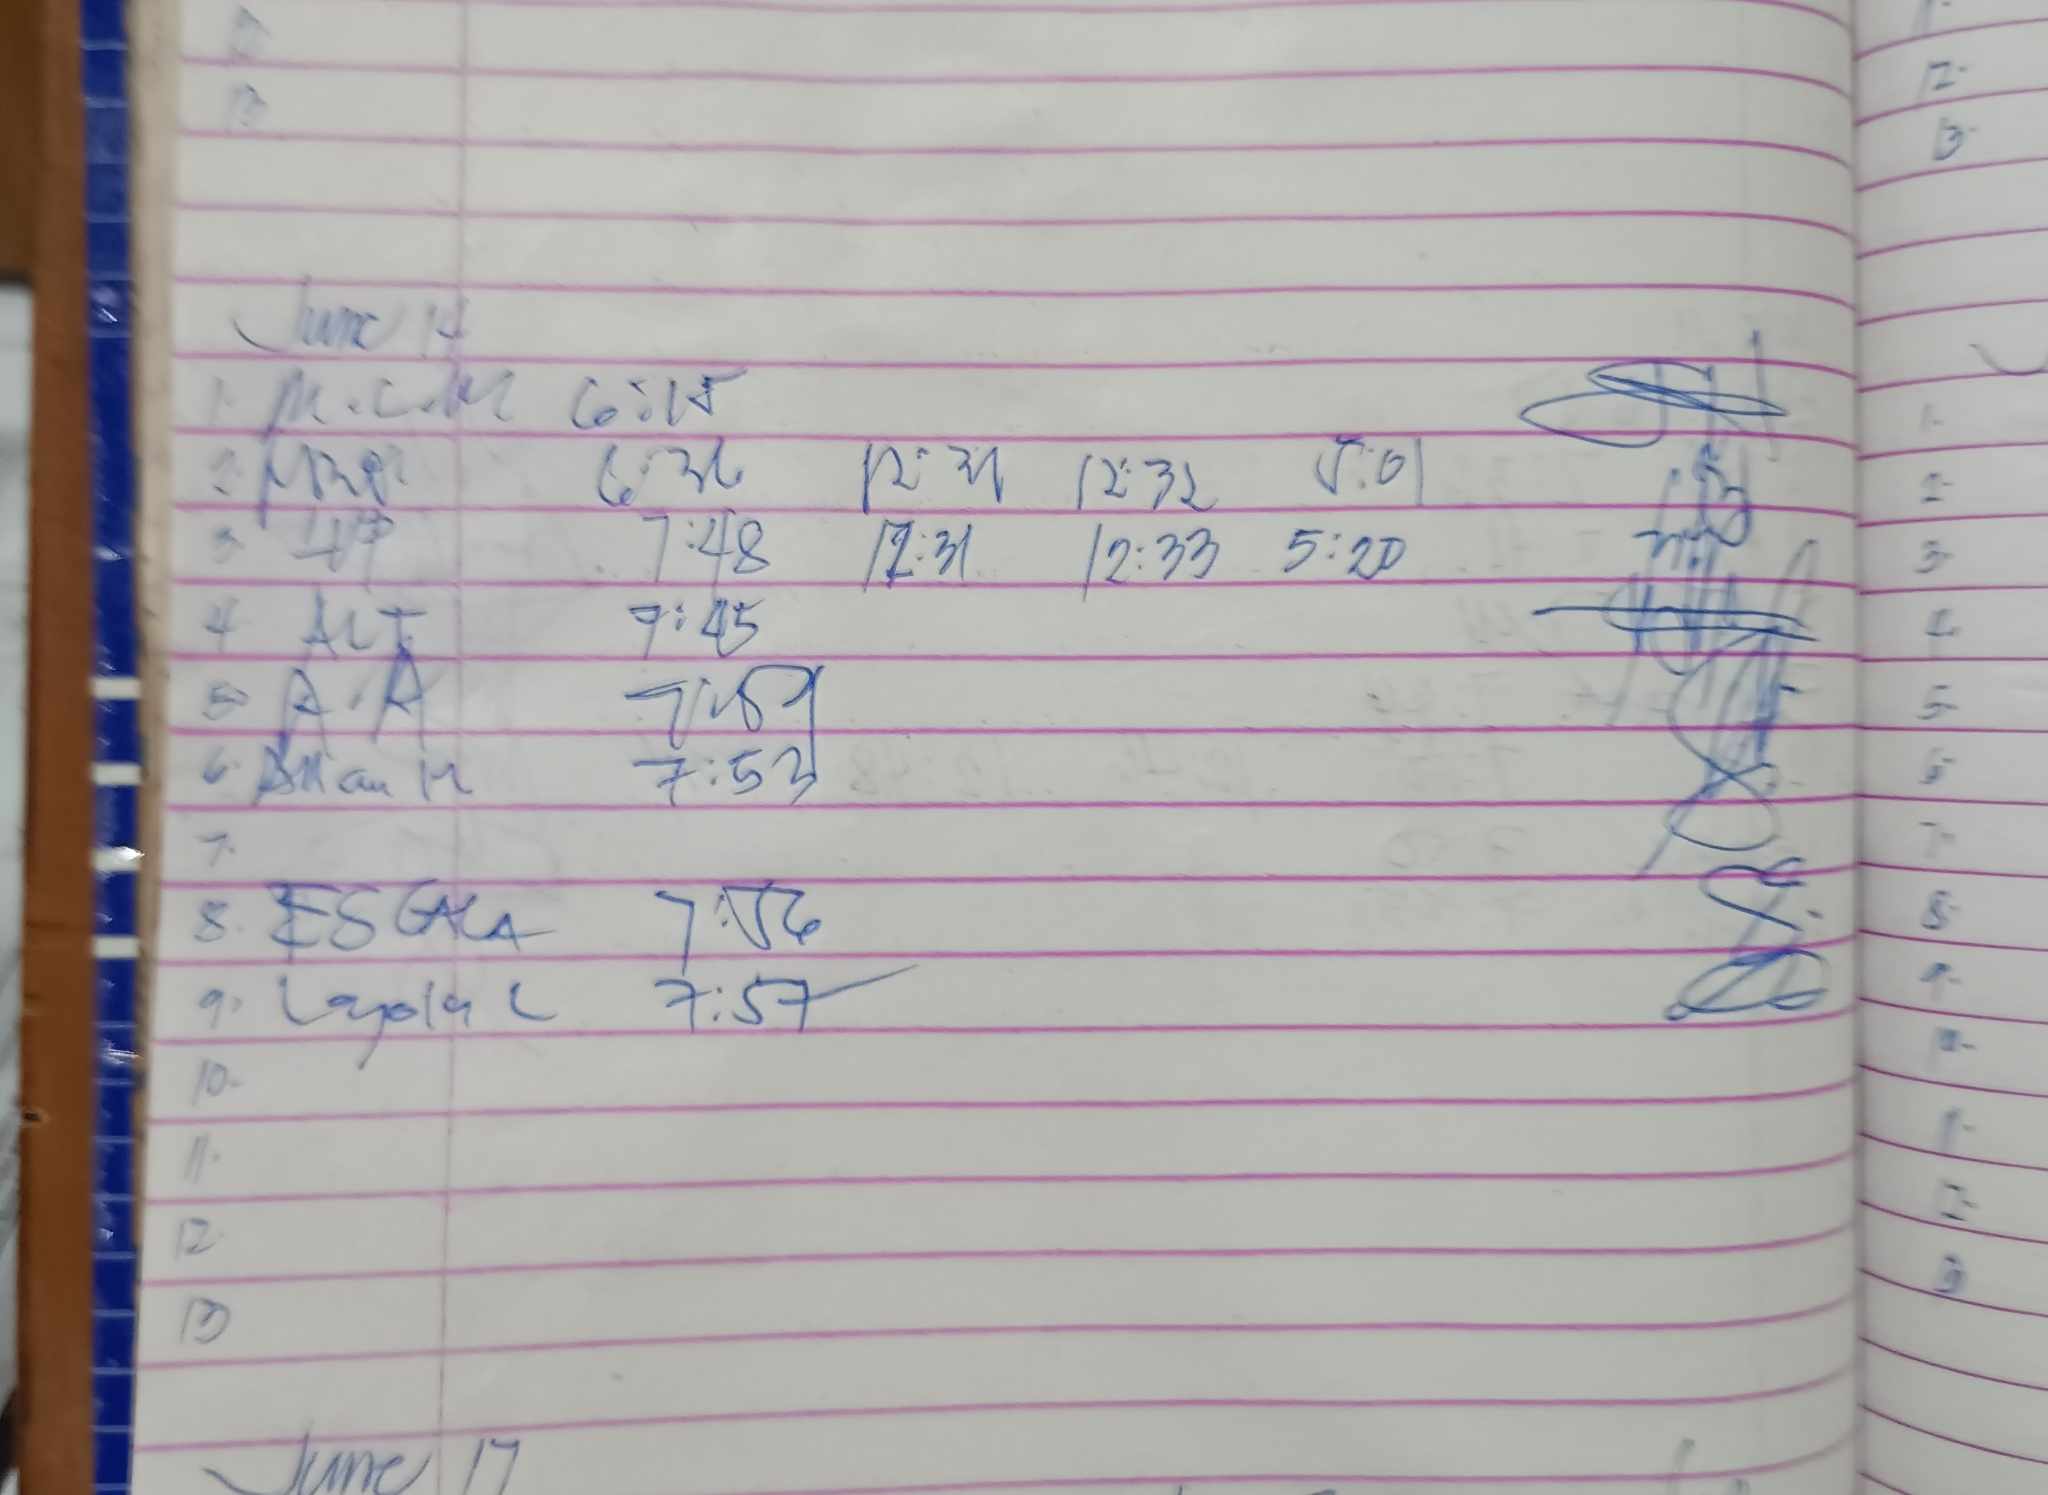 12
13
June 14
1. M.C.M 6:15
2. 6:36 12:31 12:32 5:01
3. 7:48 12:31 12:33 5:20
4. ALT 7:45
5. A.A 7:51
6. 7:53
7.
8. ESCALA 7:56
9. Layola L 7:57
10.
11.
12.
13
June 17
12.
13.
1.
2.
3.
4.
5.
6.
7.
8.
9.
10.
11.
12.
13